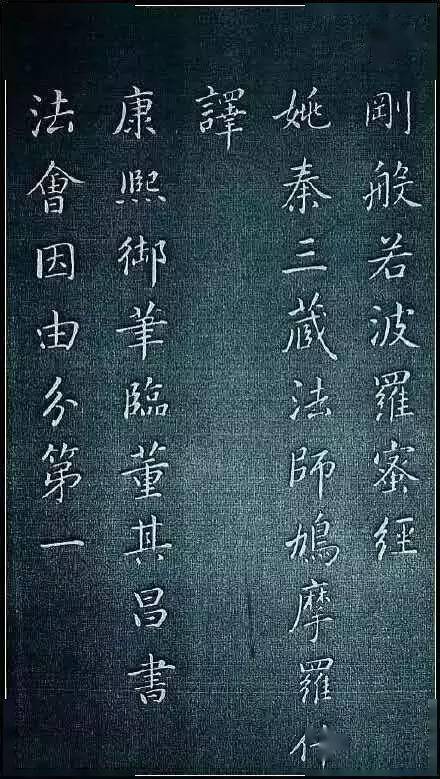 剛般若波羅蜜經
姚秦三蔵法師鳩摩羅什
譯
康熙御筆臨董其昌書
法會因由分第一